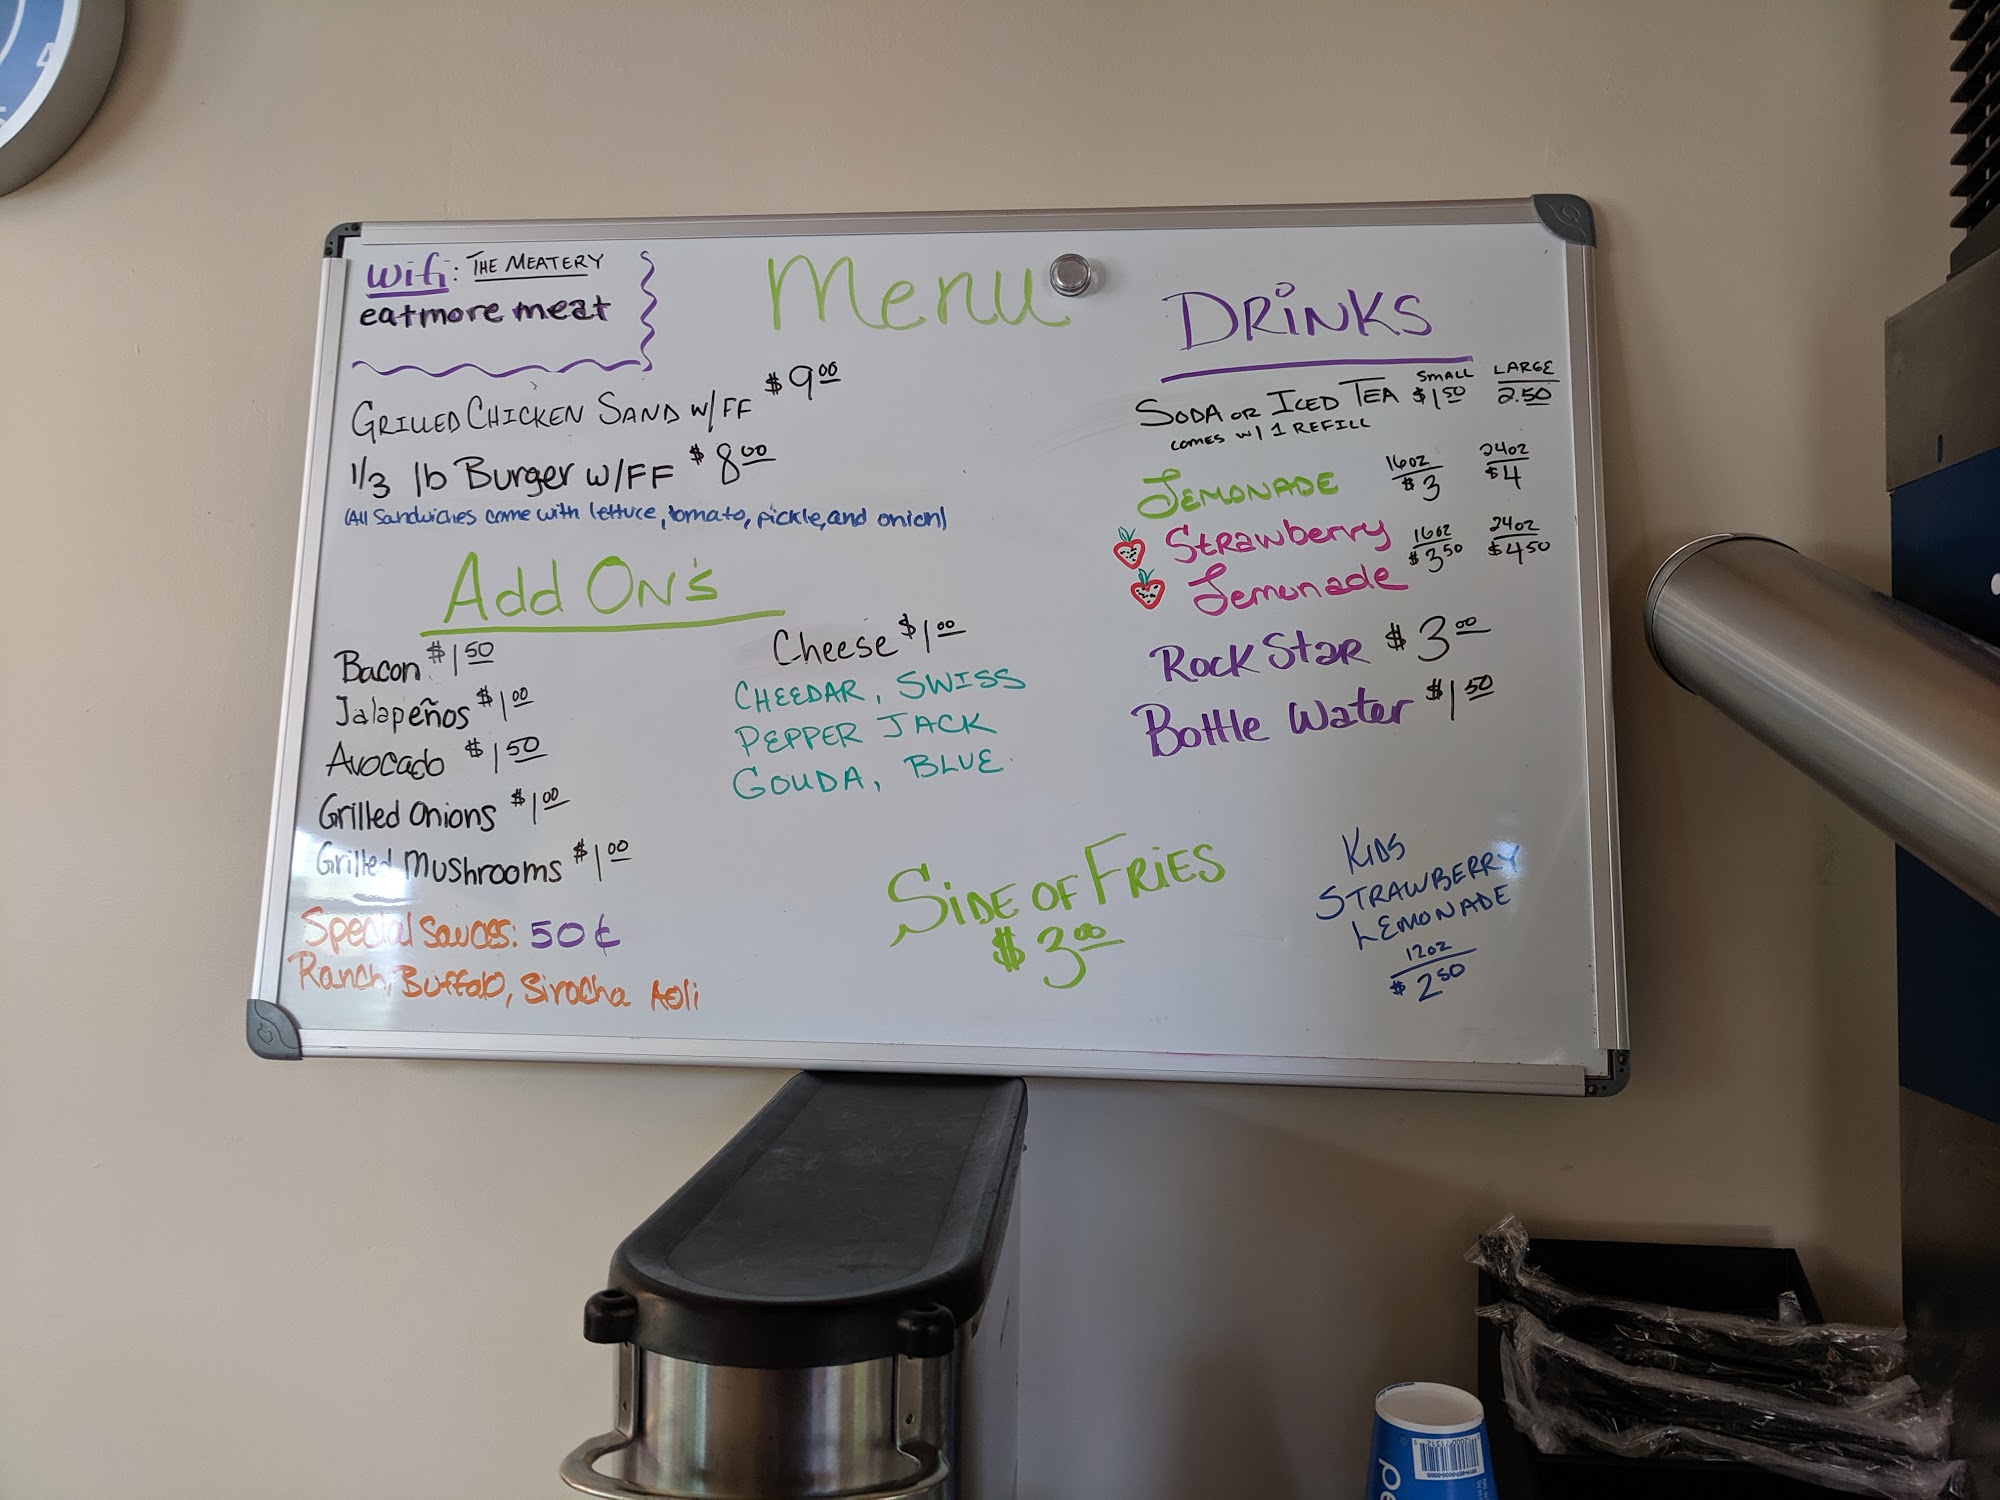 wifi: THE MEATERY
eatmore meat
Menu
GRILLED CHICKEN SAND W/FF $9.00
1/3 lb Burger W/FF $8.00
(All Sandwiches come with lettuce, tomato, pickle, and onion)
Add ON's
Bacon $1.50
Jalapeños $1.00
Avocado $1.50
Grilled Onions $1.00
Grilled Mushrooms $1.00
Special Sauces: 50¢
Ranch, Buffalo, Siracha Aoli
Cheese $1.00
CHEEDAR, SWISS
PEPPER JACK
GOUDA, BLUE
SIDE OF FRIES
$3.00
DRINKS
SMALL LARGE
SODA OR ICED TEA $1.50 2.50
COMES W/ 1 REFILL
16oz 24oz
LEMONADE $3 $4
Strawberry 16oz 24oz
$3.50 $4.50
Lemonade
ROCK STAR $3.00
Bottle Water $1.50
KIDS
STRAWBERRY
LEMONADE
12oz
$2.50
pe